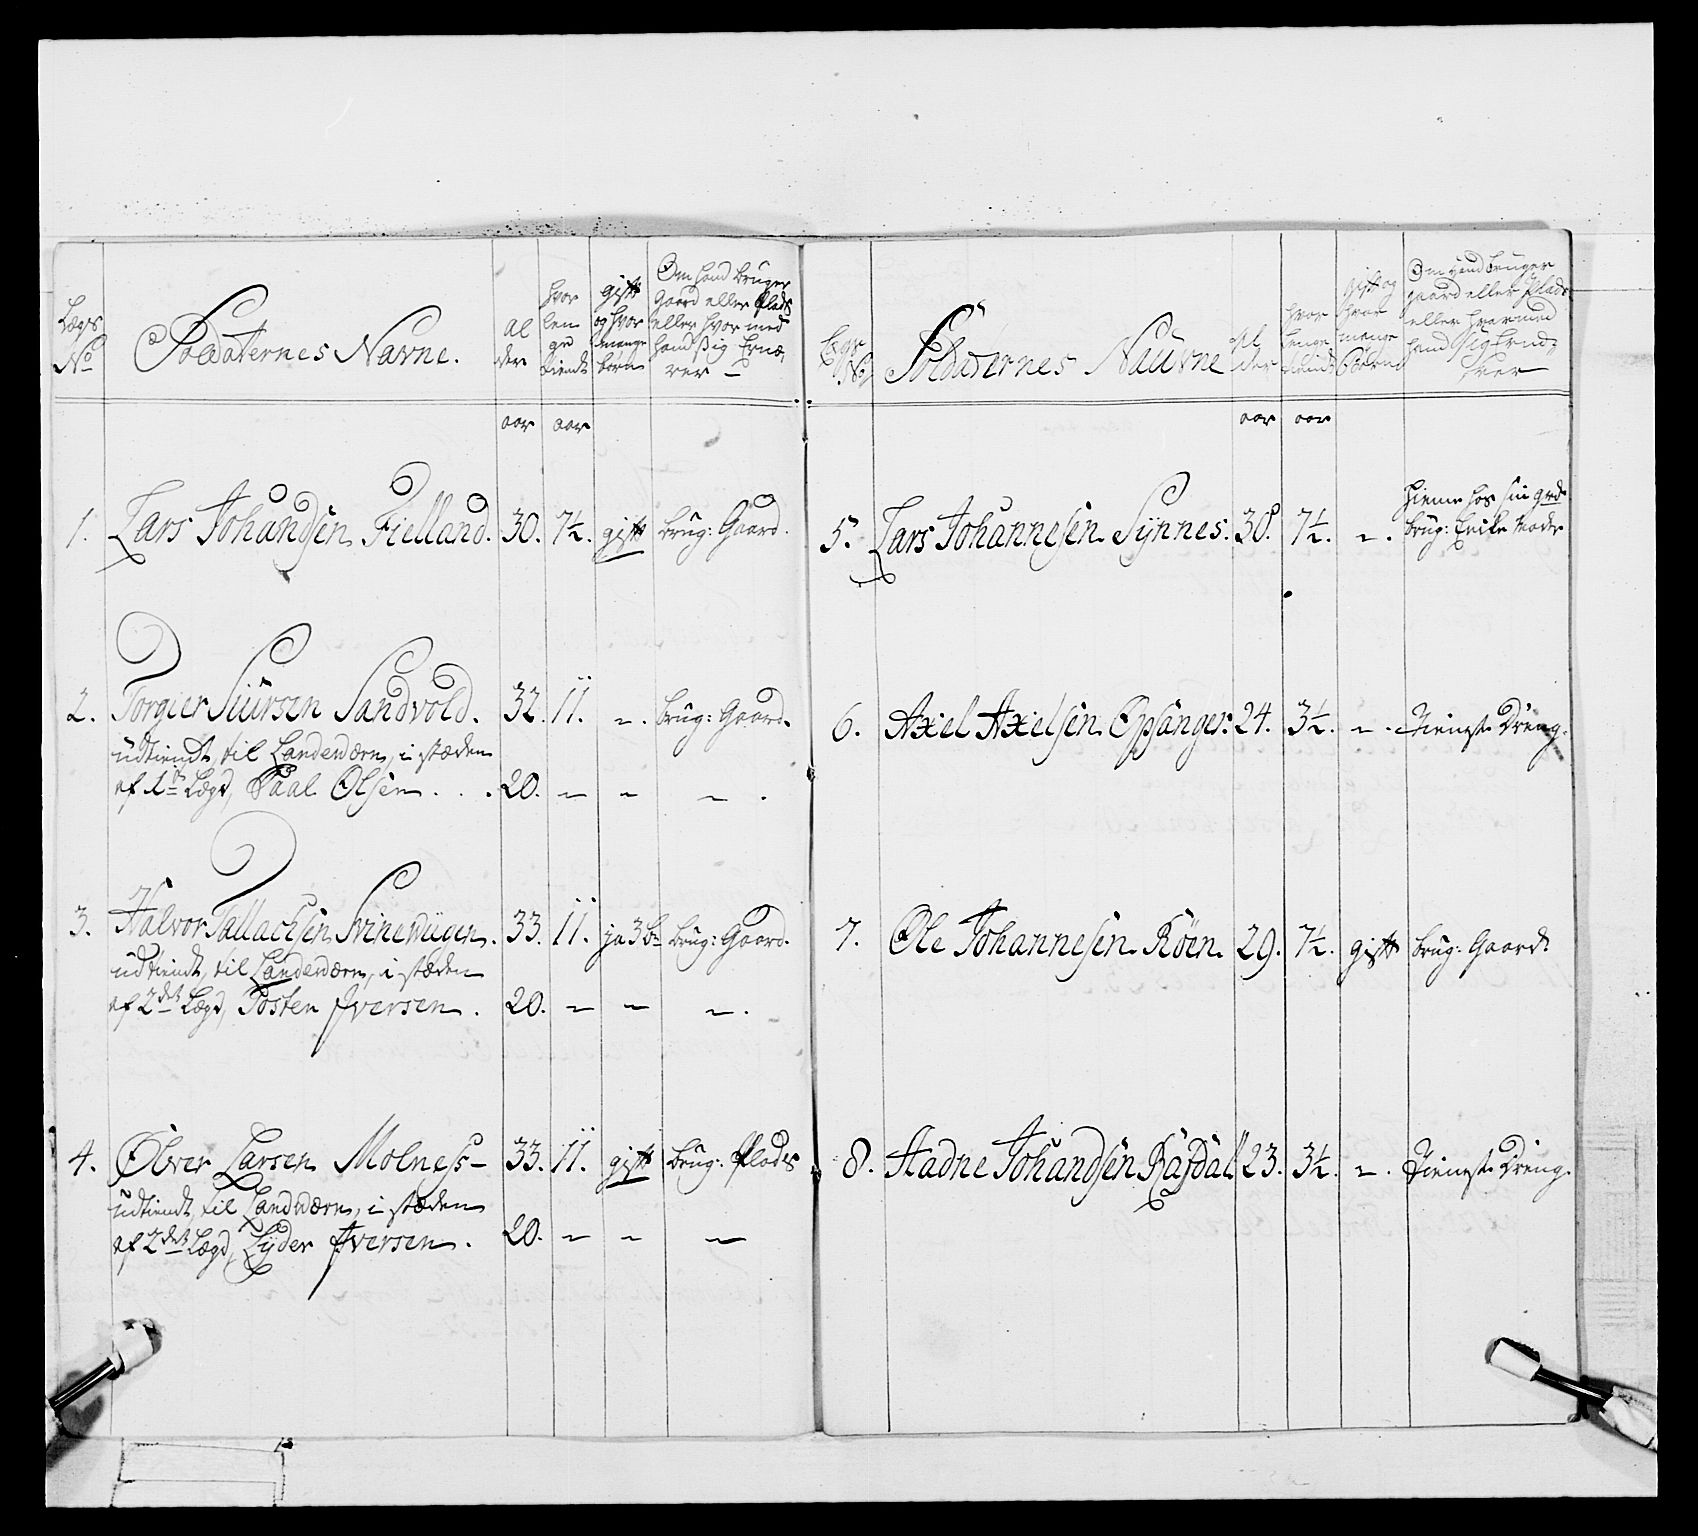 Lægs No
Soldaternes Navne.
al der
hvor len ge tient
gift og hvor mange børn
Om hand bruger Gaard eller Plads eller hvor med hand sig Ernæ, rer
aar aar
1. Lars Johandsen Fielland. 30. 7½. gift brug: Gaard.
2. Torgier Siursen Sandvold. 32. 11. „. brug: Gaard.
udtient til Landeværn, i stæden
af 1te Lægd, Paal Olsen . . . 20. „ „ „ .
3. Halvor Tallachsen Svinewiigen. 33. 11. ja 3 b. brug: Gaard.
udtient, til Landeværn, i stæden
af 2det Lægd, Tosten Iversen . 20. „ „ „.
4. Olver Larsen Molness 33. 11. gift brug: Plads
udtient, til Landværn, i stæden
af 2det Lægd, Lyder Iversen . 20. „ „ „
Lægs No
Soldaternes Naune
al der
hvor lenge tient
gift og hvor mange Børn
Om hand bruger gaard eller Plads eller hvor med hand sig Ernæ, rer
aar aar
hieme hos sin
5. Lars Johannesen Synnes. 30. 7½. „. brug: Encke Moder
6. Axel Axelsen Opsanger. 24. 3½. „. tienest Dreng.
7. Ole Johannesen Røen. 29. 7½. gift brug: Gaard
8. Aadne Johandsen Rafdal 23. 3½. „. tienest Dreng.